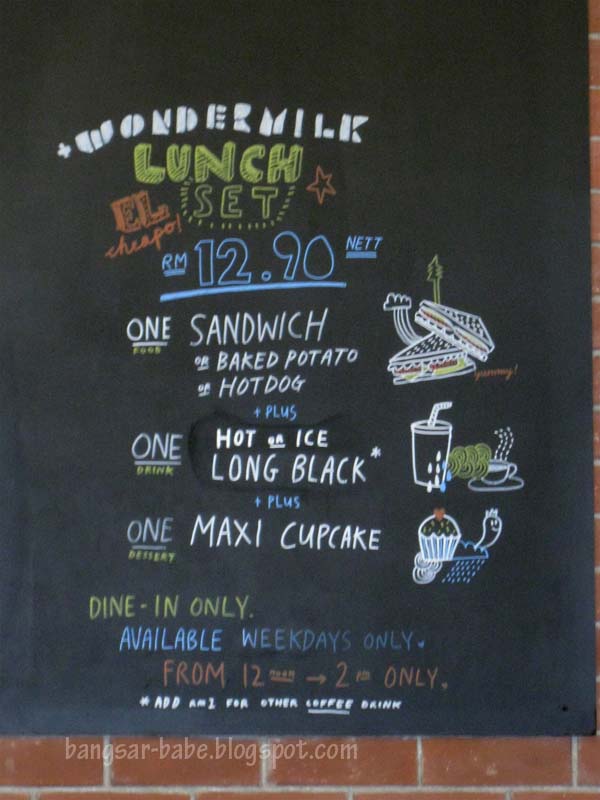 +WONDERMILK
LUNCH
SET
EL
cheapo!
RM 12.90 NETT
ONE SANDWICH
FOOD
OR BAKED POTATO
OR HOTDOG
yummy!
+ PLUS
ONE HOT OR ICE
DRINK LONG BLACK*
+ PLUS
ONE MAXI CUPCAKE
DESSERT
DINE-IN ONLY.
AVAILABLE WEEKDAYS ONLY.
FROM 12 NOON → 2 PM ONLY.
* ADD RM2 FOR OTHER COFFEE DRINK
bangsar-babe.blogspot.com